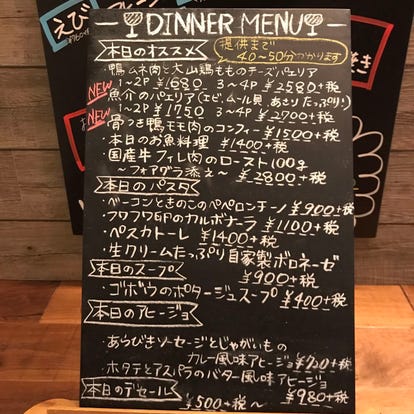 DINNER MENU
本日のオススメ
提供まで
40〜50分かかります
・鴨ムネ肉と大山鶏もものチーズパエリア
NEW 1〜2P ¥1680 3〜4P ¥2580+税
魚介のパエリア(エビ、ムール貝、あさりたっぷり!)
NEW 1〜2P ¥1750 3〜4P ¥2700+税
・骨つき鴨モモ肉のコンフィー ¥1500+税
・本日のお魚料理 ¥1400+税
・国産牛フィレ肉のロースト100g
〜フォアグラ添え〜 ¥2800+税
本日のパスタ
・ベーコンときのこのペペロンチーノ ¥900+税
・フワフワのカルボナーラ ¥1100+税
・ペスカトーレ ¥1400+税
・生クリームたっぷり自家製ボロネーゼ
¥900+税
本日のスープ
・ゴボウのポタージュスープ ¥400+税
本日のアヒージョ
・あらびきソーセージとじゃがいもの
カレー風味アヒージョ ¥720+税
・ホタテとアスパラのバター風味アヒージョ
¥980+税
本日のデセール
¥500+税〜
えび